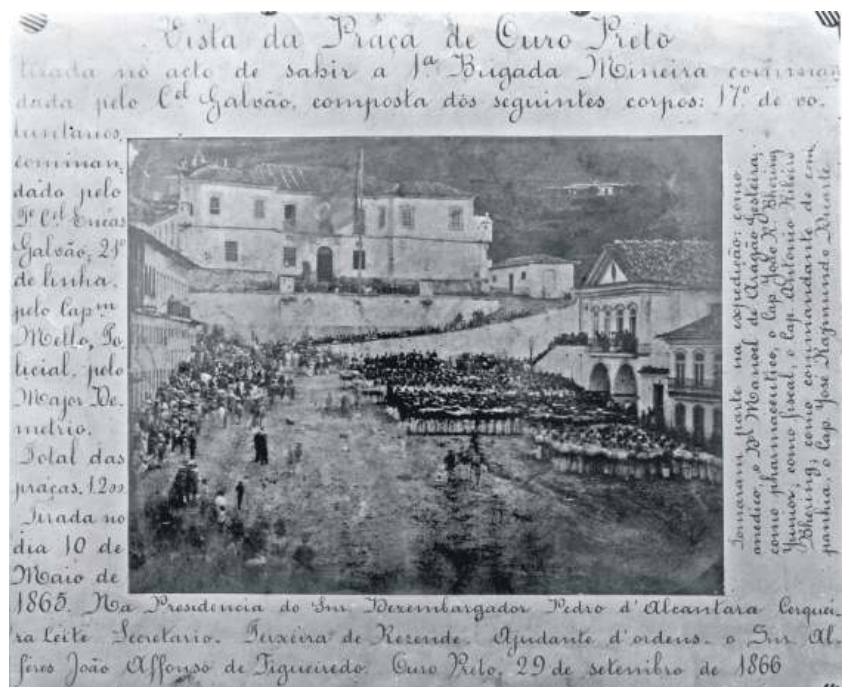 Vista da Praça de Ouro Preto
tirada no acto de sahir a 1ª Brigada Mineira comman
dada pelo Cel Galvão, composta dos seguintes corpos: 17º de vo.
luntarios,
comman,
dado pelo
Te Cel Enéas
Galvão; 21º
de linha,
pelo Capm
Mello, Po
licial, pelo
Major De-
metrio.
Total das
praças, 1200
Tirada no
dia 10 de
Maio de
1865. Na Presidencia do Snr. Dezembargador Pedro d'Alcantara Cerquei-
ra Leite Secretario. Teixeira de Rezende. Ajudante d'ordens. o Snr Al-
féres João Affonso de Figueiredo. Ouro Preto, 29 de setembro de 1866
Tomaram parte na expedição: como
medico, o Dr Manoel de Aragão Gesteira;
como pharmaceutico, o Cap José Rº Bhering
Junior, como fiscal, o Cap. Antonio Ribeiro
Bhering; como commandante de com
panhia, o Cap José Raymundo Duarte